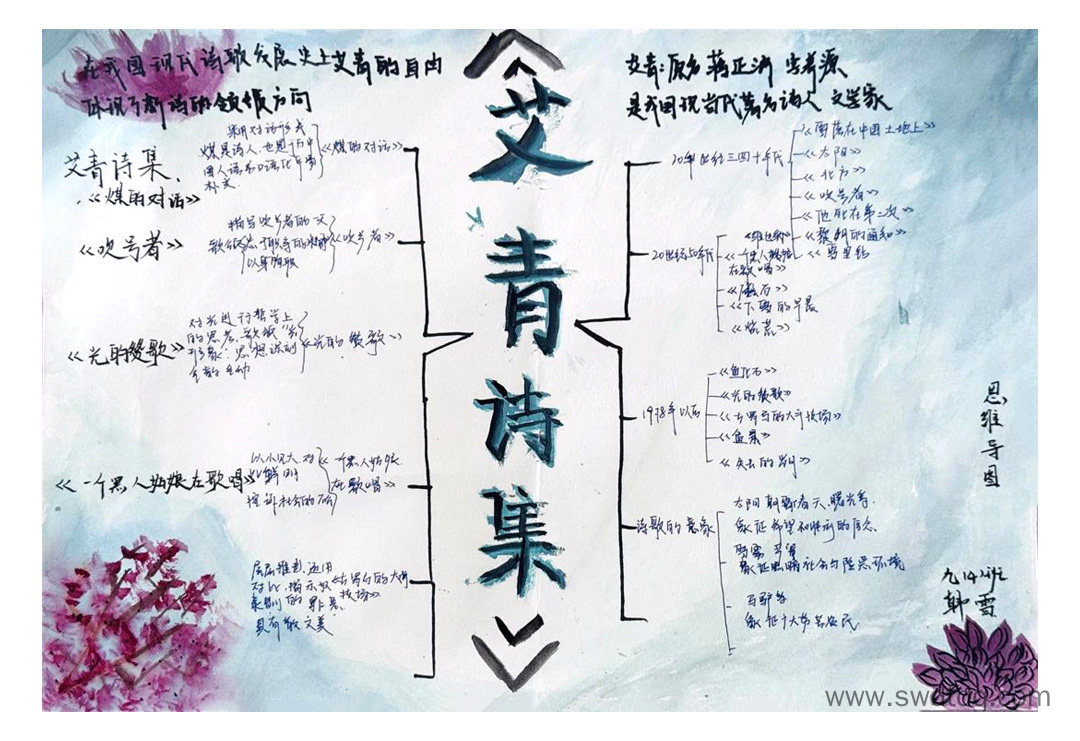 在我国现代诗歌发展史上艾青的自由
体现了新诗的领域方向
艾青:原名蒋正涵 字养源
是我国现当代著名诗人 文学家
《艾青诗集》
艾青诗集
《煤的对话》
采用对话形式
煤是诗人、也是
《煤的对话》
《吹号者》
描写吹号者的一天
以身殉职
《吹号者》
《光的赞歌》
对光进行哲学上
的思考,歌颂"光"
《光的赞歌》
《一个黑人姑娘在歌唱》
以小见大,对
比鲜明
控诉社会的不公
《一个黑人姑娘
在歌唱》
层层推进,运用
对比,揭示奴
隶制的罪恶
具有散文美
《古罗马的大斗
技场》
20世纪三四十年代
《雪落在中国土地上》
《太阳》
《北方》
《吹号者》
《他死在第二次》
《黎明的通知》
20世纪50年代
《维也纳》
《一个黑人姑娘
在歌唱》
《礁石》
《下雪的早晨》
1978年以后
《鱼化石》
《光的赞歌》
《古罗马的大斗技场》
《盆景》
《失去的岁月》
诗歌的意象
太阳 黎明 春天、曙光等
象征希望和胜利的信念
象征黑暗社会与险恶环境
象征广大劳苦农民
思维导图
九14班
韩雪
www.swdtdq.com